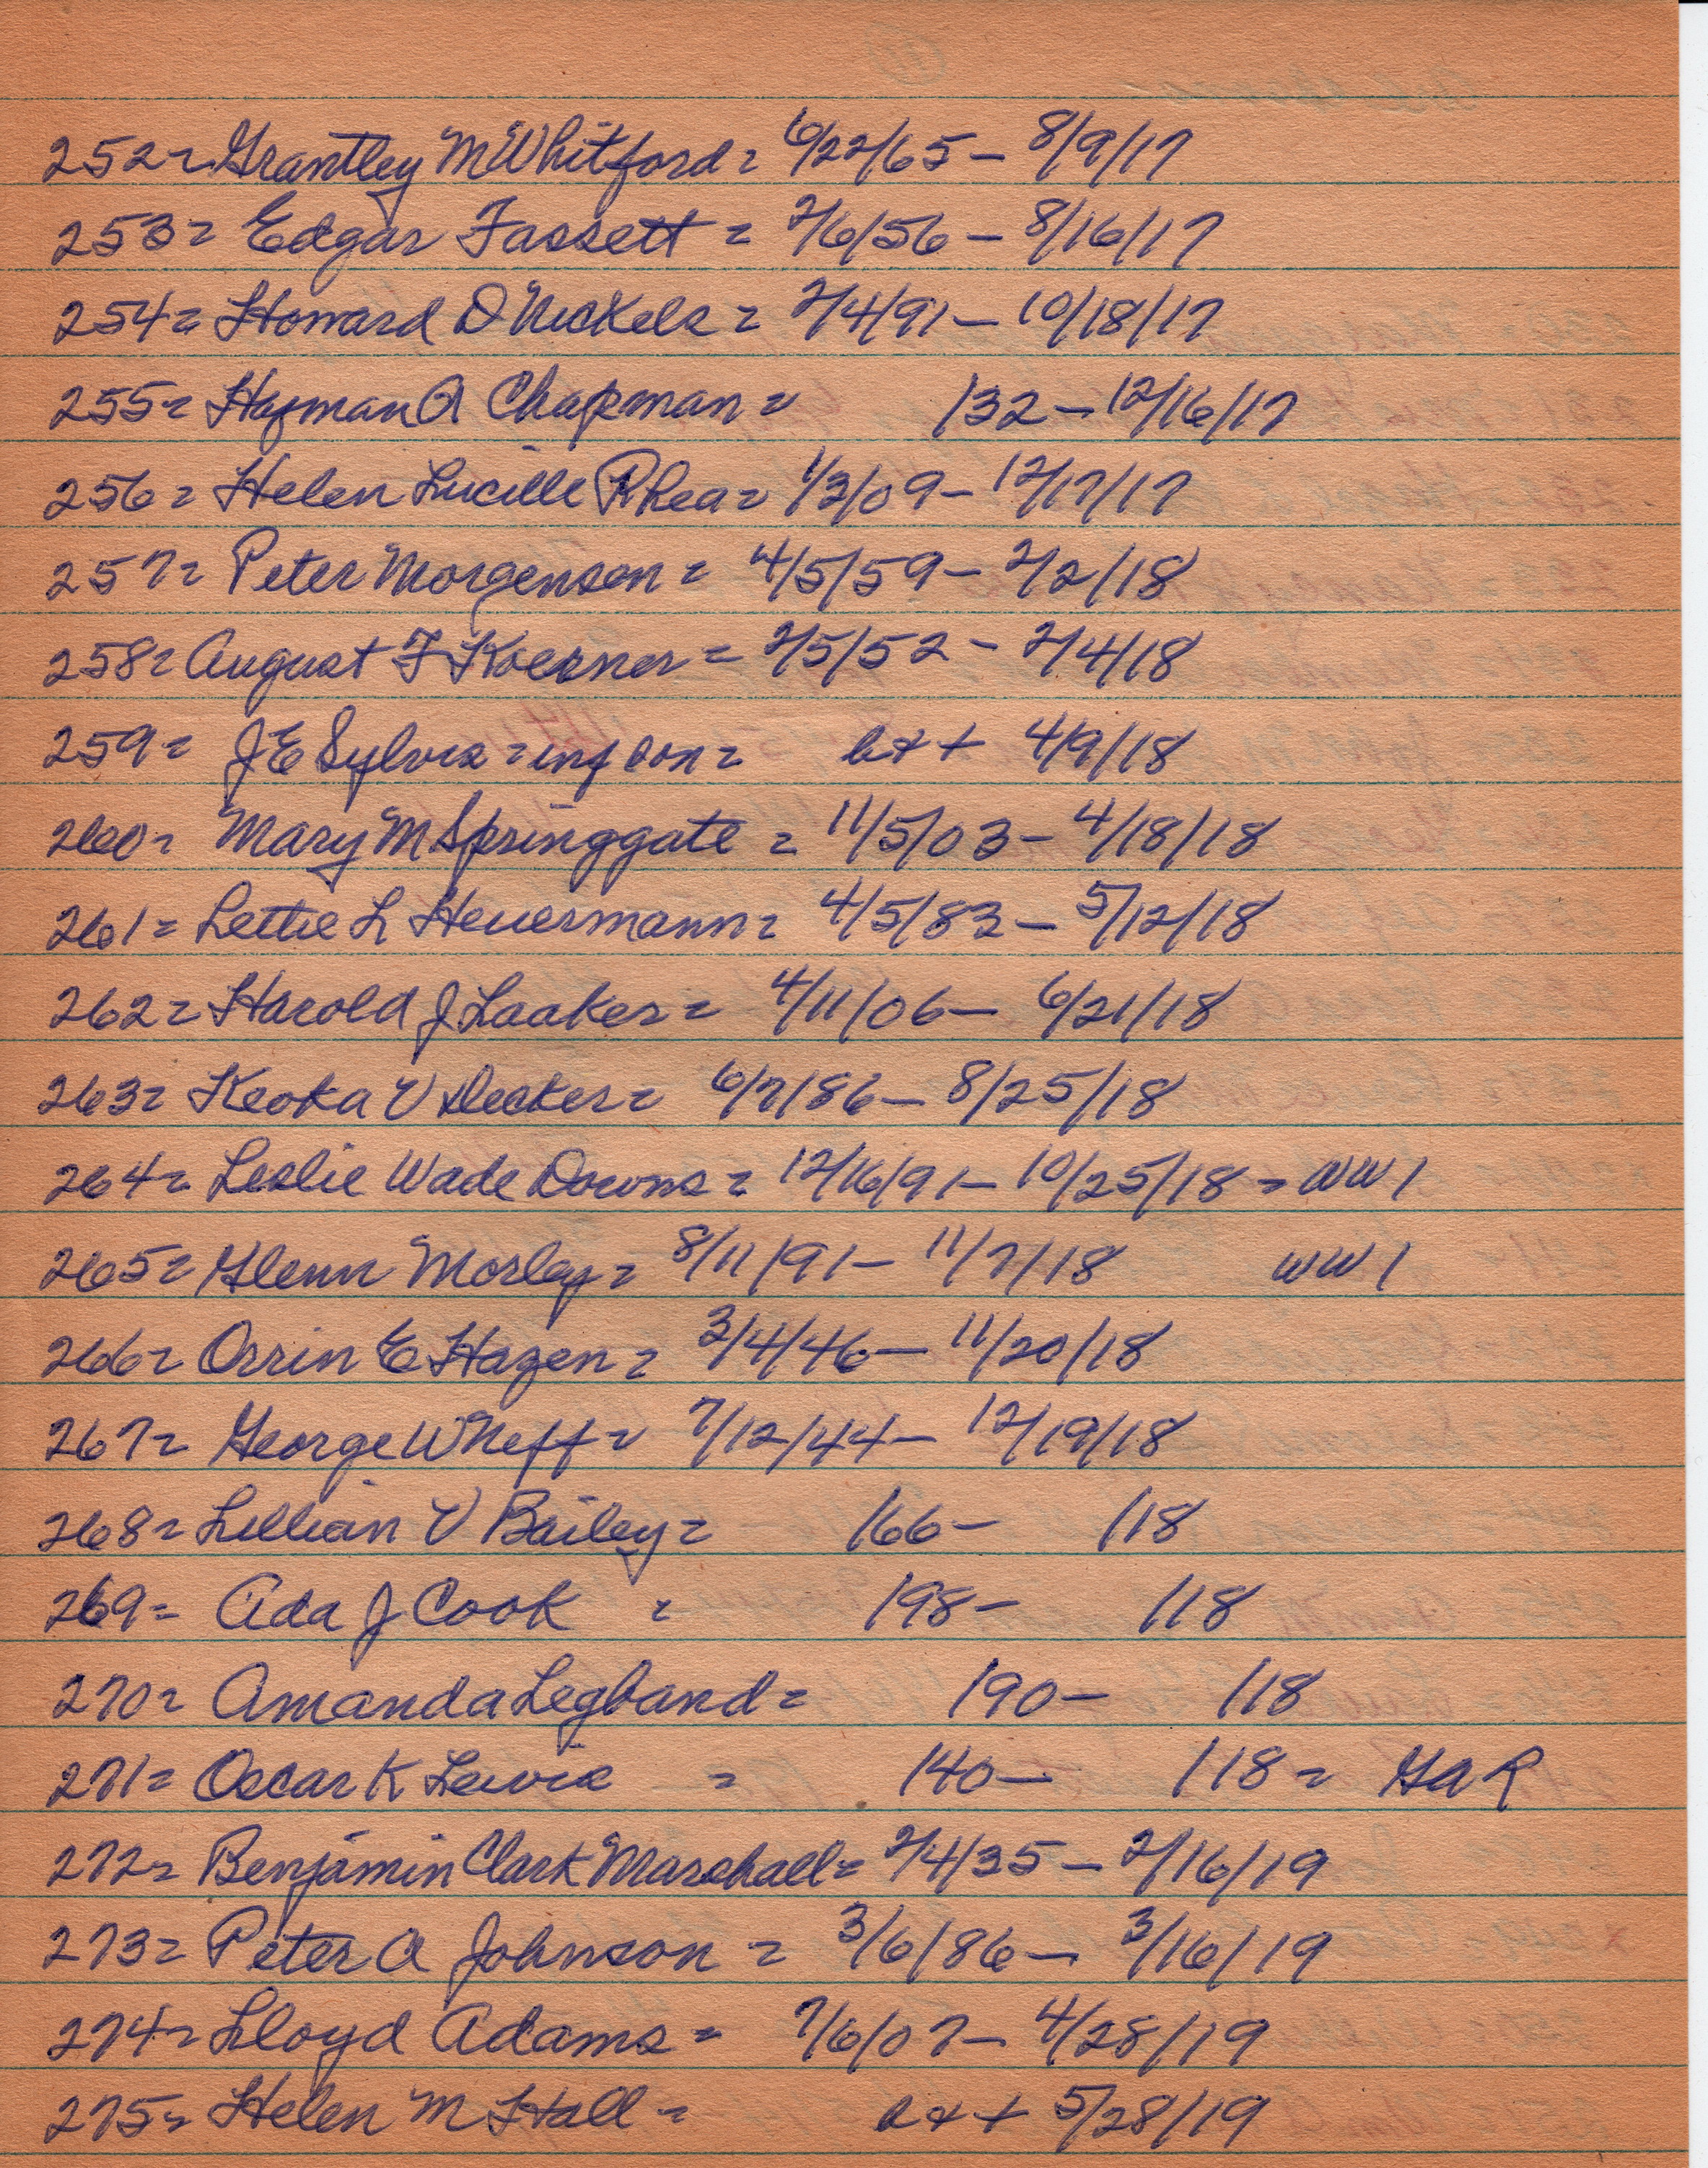 252= Grantley M Whitford = 6/22/65 - 8/9/17
253= Edgar Fassett = 2/6/56 - 8/16/17
254= Howard D Nickels = 2/4/91 - 10/18/17
255= Hayman A Chapman = /32 - 12/16/17
256= Helen Lucille Rhea = 1/3/09 - 12/17/17
257= Peter Morgensen = 4/5/59 - 2/2/18
258= August F Koerner = 2/5/52 - 2/4/18
259= J E Sylvis = inf son = b&+ 4/9/18
260= Mary M Springgate = 11/5/03 - 4/18/18
261= Lettie L Heuermann = 4/5/83 - 5/12/18
262= Harold J Laaker = 4/11/06 - 6/21/18
263= Keoka V Decker = 6/7/86 - 8/25/18
264= Leslie Wade Downs = 12/16/91 - 10/25/18 = WW1
265= Glenn Morley = 8/11/91 - 11/7/18 WW1
266= Orrin E Hazen = 3/4/46 - 11/20/18
267= George W Neff = 7/12/44 - 12/19/18
268= Lillian V Bailey = /66 - /18
269= Ada J Cook = /98 - /18
270= Amanda Legband = /90 - /18
271= Oscar K Lewis = /40 - /18 = GAR
272= Benjamin Clark Marshall = 2/4/35 - 2/16/19
273= Peter A Johnson = 3/6/86 - 3/16/19
274= Lloyd Adams = 7/6/07 - 4/28/19
275= Helen M Hall = b&+ 5/28/19